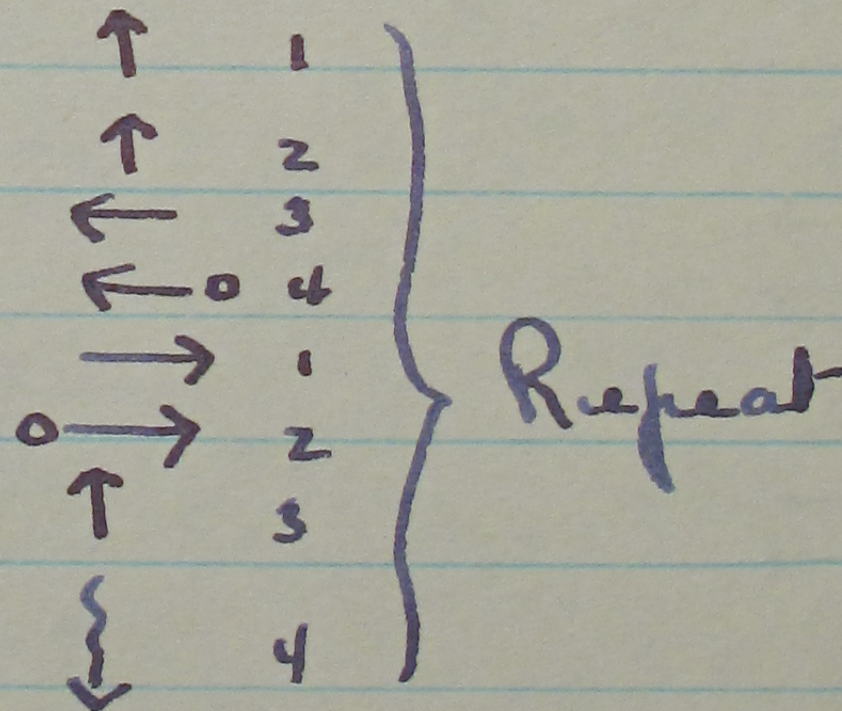 ↑ 1
↑ 2
← 3
←o 4
→ 1
o→ 2
↑ 3
↓ 4
Repeat